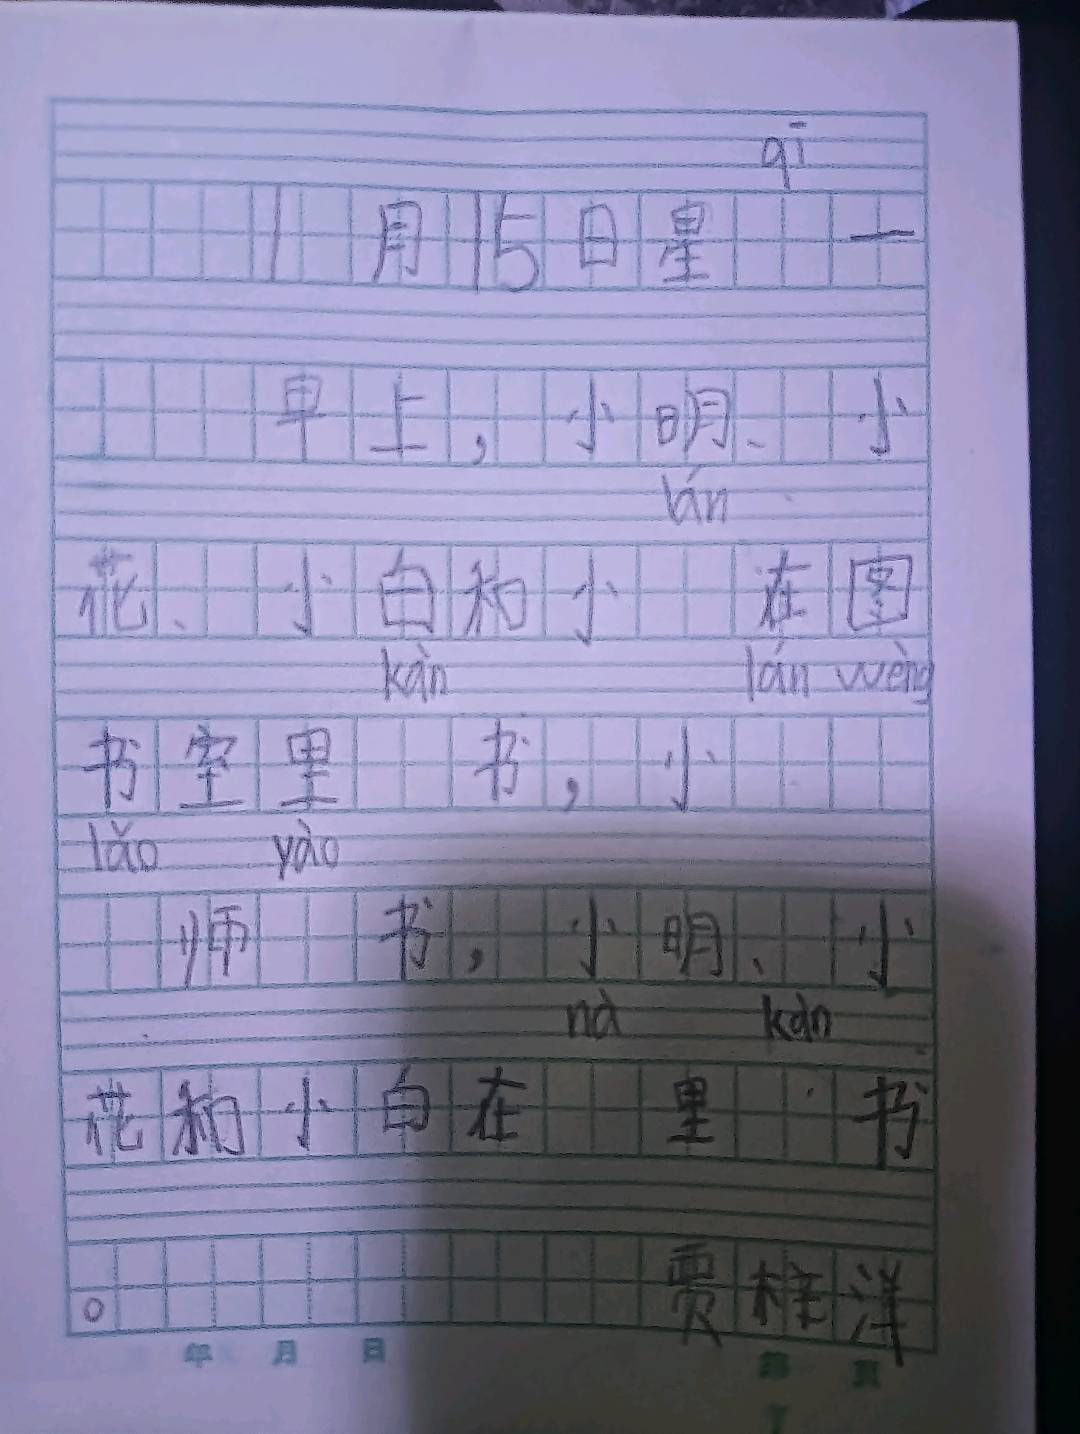 qī
1月15日星 一
早上，小明、小
lán
花、小白和小 在图
kàn lán wèng
书室里 书，小
lǎo yào
师 书，小明、小
nà kàn
花和小白在 里 书
。 贾梓洋
年 月 日 第 页